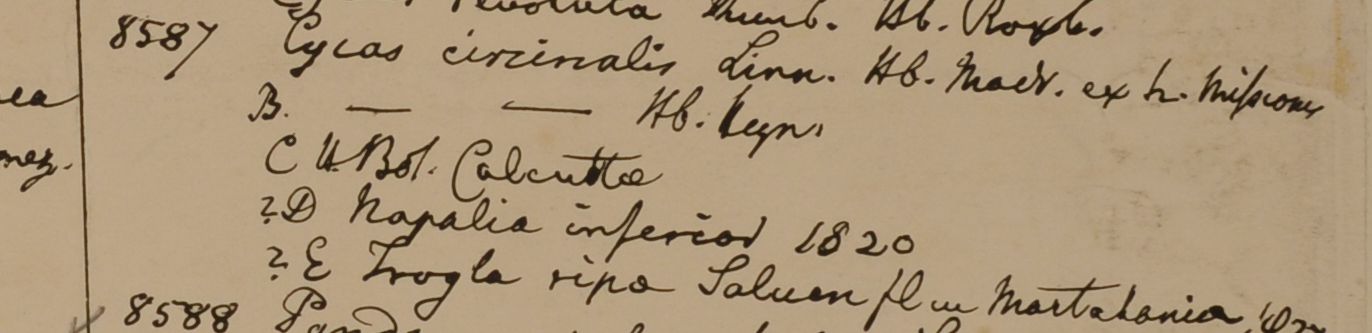 revoluta Thunb. Hb. Roxb.
8587 Cycas circinalis Linn. Hb. Madr. ex h. Missionis
ea B. — — Hb. Heyn.
C H. Bot. Calcutta
nez. ?D Napalia inferior 1820
?E Trogla ripa Saluen fluu Martabania
8588 Pand